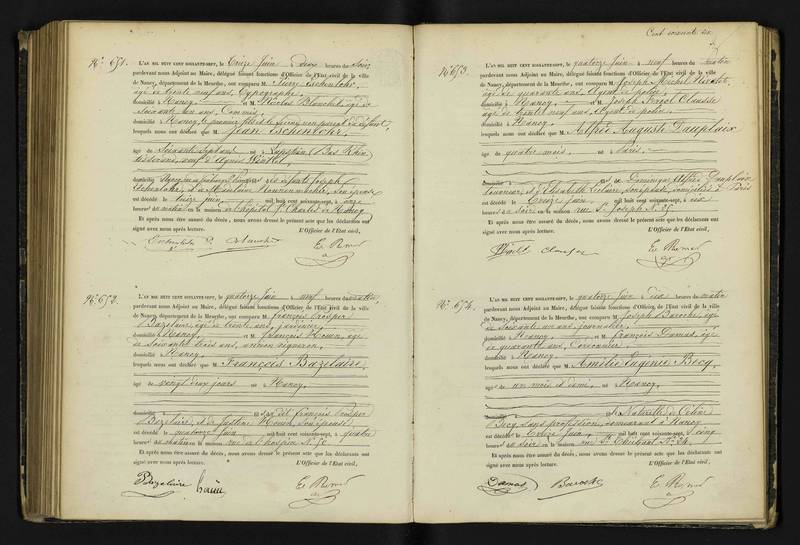 N° 651.
L'AN MIL HUIT CENT SOIXANTE-SEPT, le treize Juin à deux heures du Soir
pardevant nous Adjoint au Maire, délégué faisant fonctions d'Officier de l'Etat civil de la ville
de Nancy, département de la Meurthe, ont comparu M. Pierre Eschenlohr,
âgé de trente neuf ans, Typographe
domicilié à Nancy, et M. Nicolas Blanchet, âgé de
Soixante un ans, Commis,
domicilié à Nancy, le premier fils et le second non parent du défunt,
lesquels nous ont déclaré que M. Jean Eschenlohr,
âgé de Soixante Sept ans, né à (Bas Rhin)
domicilié
Eschenlohr, et de son épouse
est décédé le treize juin, mil huit cent soixante-sept, à onze
heures du matin en la maison de l'hôpital St Charles de Nancy
Et après nous être assuré du décès, nous avons dressé le présent acte que les déclarants ont
signé avec nous après lecture. L'Officier de l'Etat civil,
N° 652.
L'AN MIL HUIT CENT SOIXANTE-SEPT, le quatorze Juin à neuf heures du matin,
pardevant nous Adjoint au Maire, délégué faisant fonctions d'Officier de l'Etat civil de la ville
de Nancy, département de la Meurthe, ont comparu M. François Prosper
Bazelaire, âgé de trente ans, jardinier,
domicilié à Nancy et M. François Houin, âgé
de Soixante trois ans, ancien vigneron,
domicilié à Nancy,
lesquels nous ont déclaré que M. François Bazelaire,
âgé de vingt deux jours né à Nancy,
domicilié à fils du dit François Prosper
Bazelaire, et de Justine Houin, son épouse
est décédé le quatorze Juin, mil huit cent soixante-sept, à quatre
heures du matin en la maison rue de l'hospice N°
Et après nous être assuré du décès, nous avons dressé le présent acte que les déclarants ont
signé avec nous après lecture. L'Officier de l'Etat civil,
Bazelaire houin
Cent soixante six
N° 653.
L'AN MIL HUIT CENT SOIXANTE-SEPT, le quatorze Juin à neuf heures du matin
pardevant nous Adjoint au Maire, délégué faisant fonctions d'Officier de l'Etat civil de la ville
de Nancy, département de la Meurthe, ont comparu M. Joseph Michel
âgé de quarante ans, Agent de police,
domicilié à Nancy, et M. Joseph Clausse
âgé de trente neuf ans, Agent de police,
domicilié à Nancy,
lesquels nous ont déclaré que M. Alfred Auguste Dauplaix
âgé de quatre mois, né à Paris,
fils de Dominique Alfred Dauplaix
et d'Elisabeth domiciliés à Paris
est décédé le treize Juin, mil huit cent soixante-sept, à six
heures du Soir en la maison rue St Joseph N°
Et après nous être assuré du décès, nous avons dressé le présent acte que les déclarants ont
signé avec nous après lecture. L'Officier de l'Etat civil,
N° 654.
L'AN MIL HUIT CENT SOIXANTE-SEPT, le quatorze Juin à dix heures du matin
pardevant nous Adjoint au Maire, délégué faisant fonctions d'Officier de l'Etat civil de la ville
de Nancy, département de la Meurthe, ont comparu M. Joseph Baroche, âgé
de Soixante un ans, journalier,
domicilié à Nancy, et M. François Damas, âgé
de quarante ans, Cordonnier,
domicilié à Nancy,
lesquels nous ont déclaré que M. Amélie Eugénie Becq,
âgé de un mois et demi, né à Nancy,
domicilié à fille Naturelle de Céline
Becq, sans profession, demeurant à Nancy
est décédé le treize Juin, mil huit cent soixante-sept, à cinq
heures du soir en la maison rue St Thiébaut N° 24.
Et après nous être assuré du décès, nous avons dressé le présent acte que les déclarants ont
signé avec nous après lecture. L'Officier de l'Etat civil,
Damas Baroche